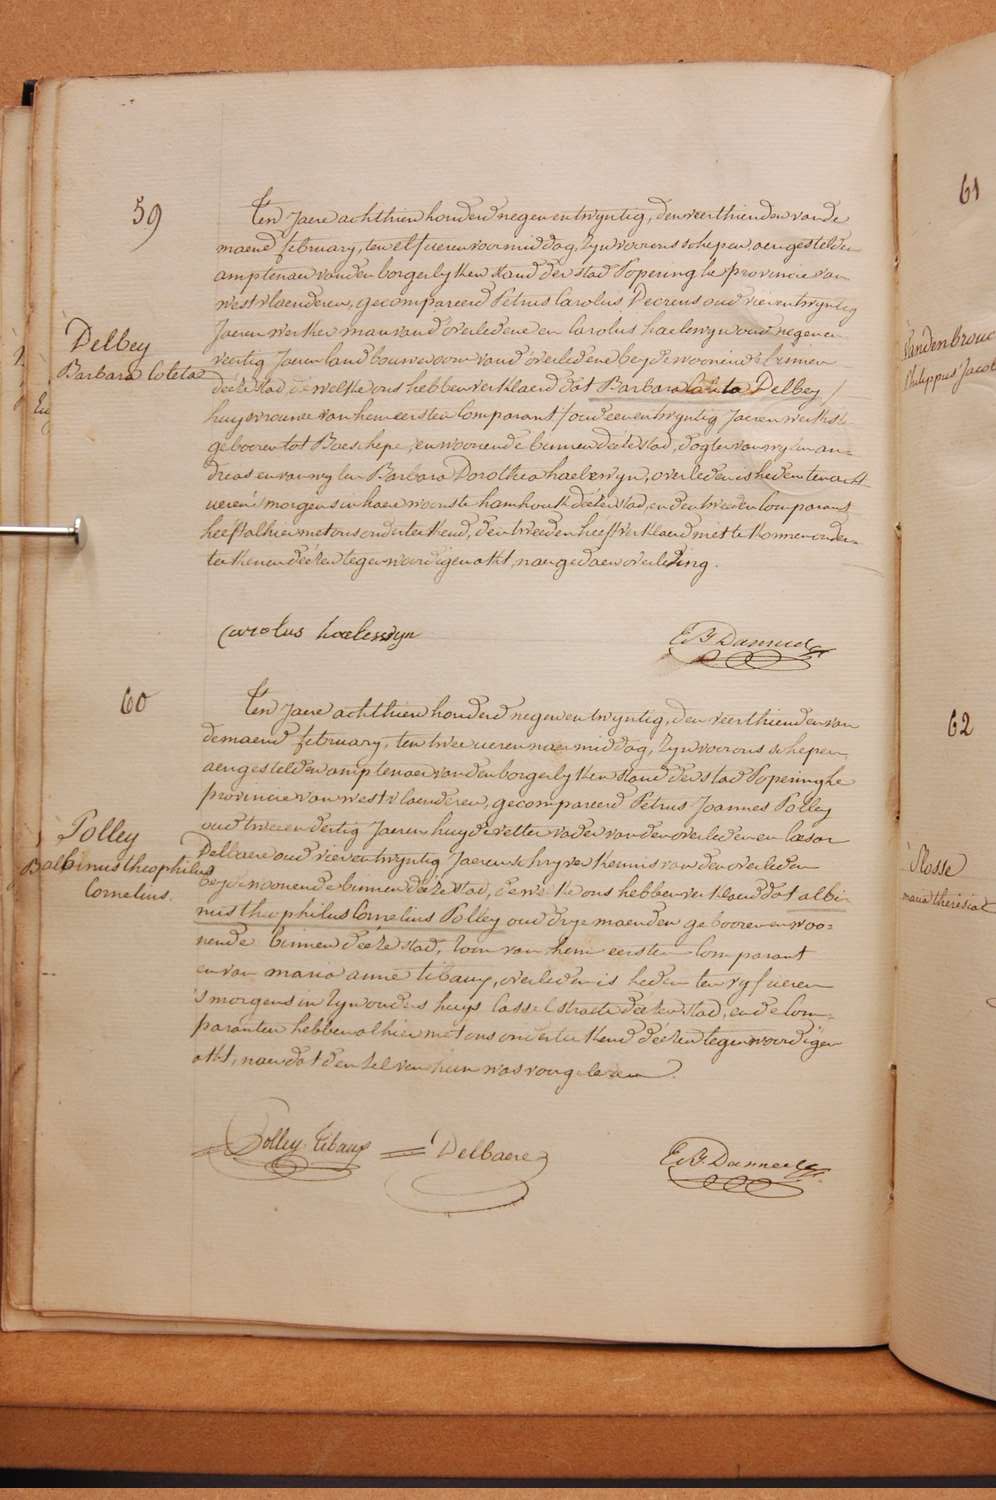 59
Ten Jaere achthien honderd negen en twyntig, den veerthienden van de
maend february, ten elf ueren voormiddag, Zyn voor ons schepen, aengestelden
amptenaer van den borgerlyken stand der stad Poperinghe provincie van
westvlaenderen, gecompareerd Petrus Carolus Decrens oud vier en twyntig
Jaeren werkman van d'overledene en Carolus haelewyn oud negen en
veertig Jaeren landbouwer oom van d'overledene beyde woonende binnen
deéze stad de welke ons hebben verklaerd dat Barbara Delbey /
huysvrouwe van hem eersten Comparant / oud een en twyntig Jaeren
gebooren tot Boeschepe, en woonende binnen deéze stad, dogter van wylen an=
dreas en van wylen Barbara Dorothea haelewyn, overleden is heden ten acht
ueren 's morgens in haere woonste hamhoek deézer stad, en den tweeden Comparant
heeft alhier met ons onderteekend, den tweeden heeft verklaerd niet te konnen onder=
teekenen deézen tegenwoordigen akt, naer gedaen overlezing.
Delbey
Barbara Coleta
Carolus haelewyn
60
Ten Jaere achthien honderd negen en twyntig, den veerthienden van
de maend february, ten twee ueren naermiddag, Zyn voor ons schepen,
aengestelden amptenaer van den borgerlyken stand der stad Poperinghe
provincie van westvlaenderen, gecompareerd Petrus Joannes Polley
oud twee en dertig Jaeren huydevetter vader van den overleden en Cæsar
Delbaere oud vier en twyntig Jaeren schryver kennis van den overleden
beyde woonende binnen deéze stad, de welke ons hebben verklaerd dat albi=
nus theophilus Cornelius Polley oud drye maenden gebooren en woo=
nende binnen deéze stad, Zoon van hem eersten Comparant
en van maria anne tibaux, overleden is heden ten vyf ueren
's morgens in Zyn ouders huys Casselstraete deézer stad, en de Com=
paranten hebben alhier met ons onderteekend deézen tegenwoordigen
akt, naer dat den Zelven hun was voorgelezen.
Polley
Balbinus theophilus
Cornelius.
Polley Tibaux
Delbaere
61
Vandenbrouc
Philippus Jacob
62
Slosse
maria theresia